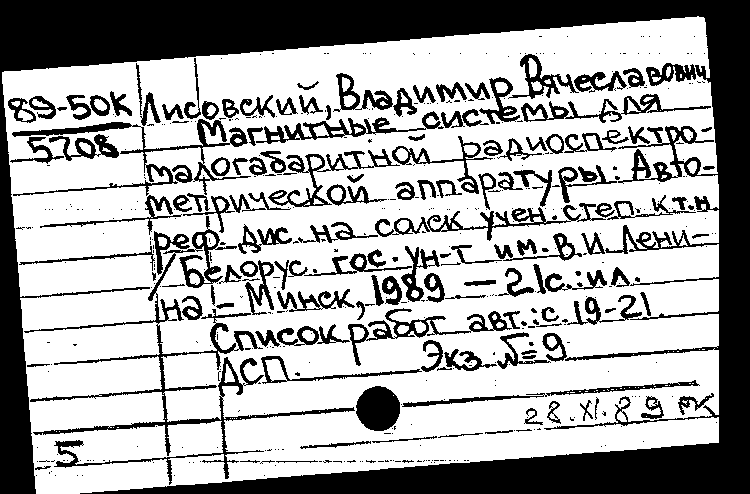 89-50К Лисовский, Владимир Вячеславович.
5708 Магнитные системы для
малогабаритной радиоспектро-
метрической аппаратуры: Авто-
реф. дис. на соиск учен. степ. к.т.н.
/ Белорус. гос. ун-т им. В.И. Лени-
на. - Минск, 1989. - 21с.: ил.
Список работ авт.: с. 19-21.
ДСП. Экз. №=9
28.XI.89
5